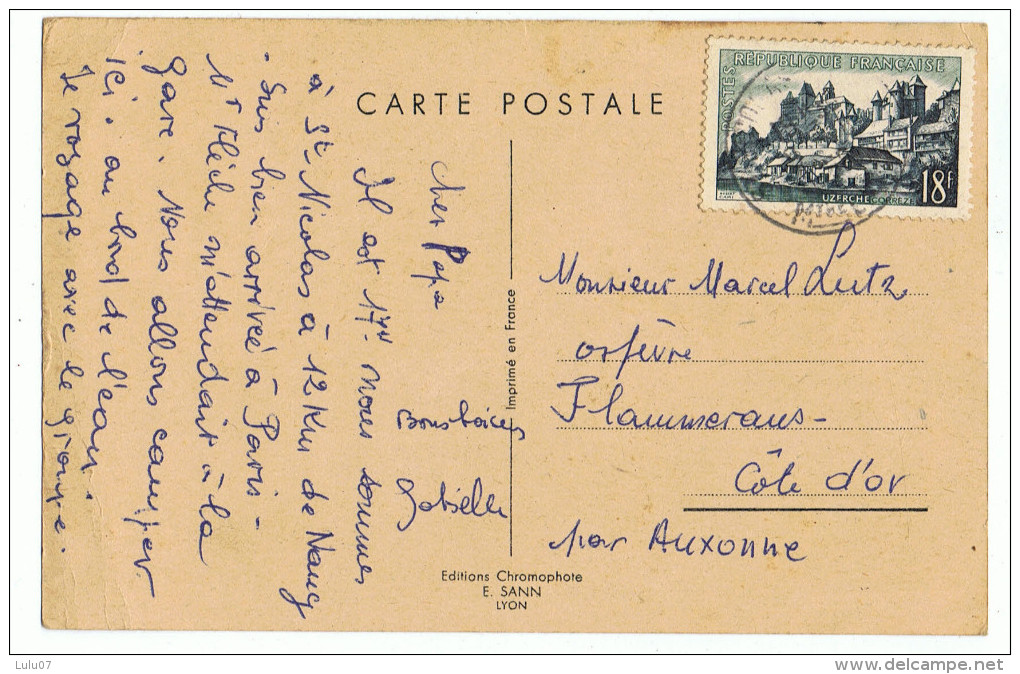 CARTE POSTALE
POSTES
RÉPUBLIQUE FRANÇAISE
UZERCHE CORRÈZE
18F
Cher Papa
Il est 17H nous sommes
à St Nicolas à 12 Km de Nancy
- Suis bien arrivée à Paris -
Mr Flèche m'attendait à la
gare. Nous allons camper
ici. au bord de l'eau.
Je voyage avec le groupe.
Bons baisers
Imprimé en France
Monsieur Marcel Lutz
orfèvre
Flammerans-
Côte d'or
par Auxonne
Editions Chromophote
E. SANN
LYON
Lulu07
www.delcampe.net